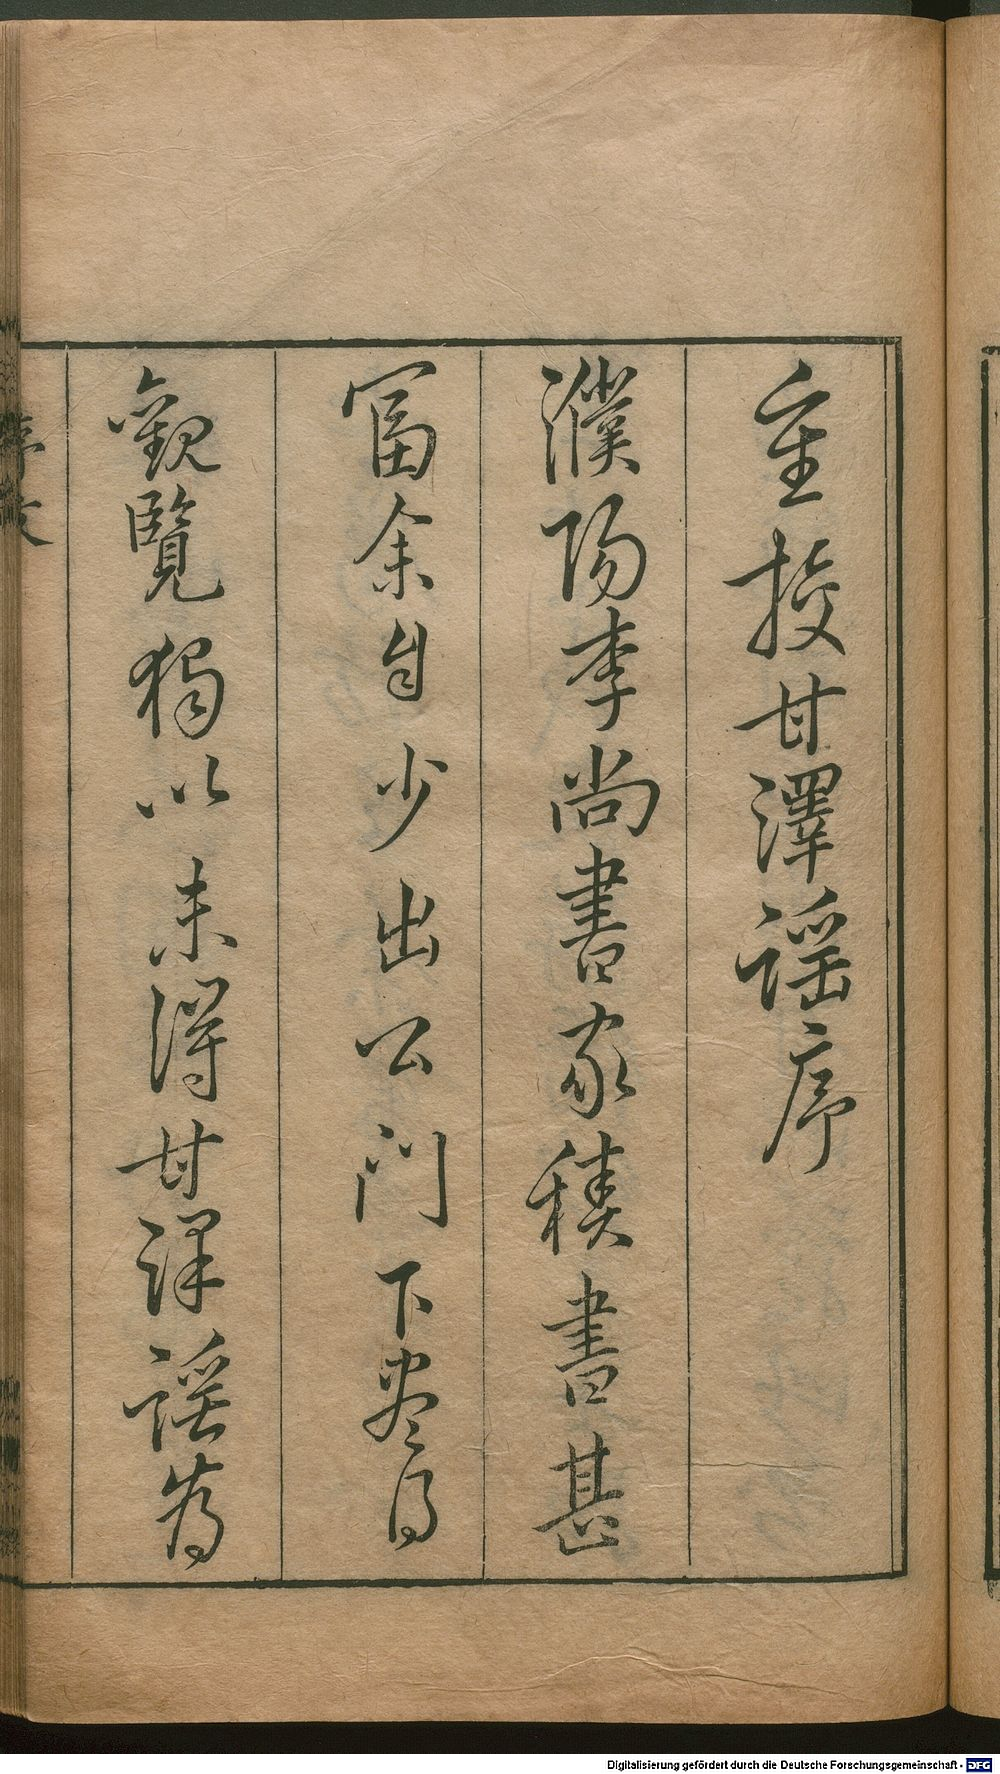 重授甘澤謡序
濮陽李尚書家積書甚
富余自少出公门下盡得
觀覽獨以未得甘澤謡為
Digitalisierung gefördert durch die Deutsche Forschungsgemeinschaft - DFG